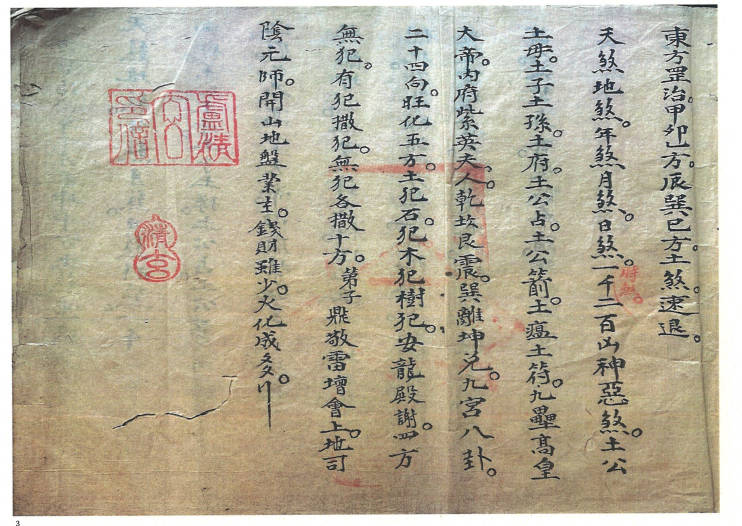 東方罡治甲卯乙方辰巽巳方土煞速退。
天煞地煞。年煞月煞。日煞。時煞。一千二百凶神惡煞。土公
土母。土子土孫。土府土公占。土公箭。土瘟土符。九壘高皇
大帝。內府紫英夫人。乾坎艮震。巽離坤兌。九宮八卦。
二十四向。旺化五方。土犯石犯木犯樹犯。安龍殿謝。四方
無犯。有犯撒犯。無犯各撒十方。弟子鼎敬雷壇會上。地司
陰元師。開山地盤業主。錢財雖少。火化成多。
3